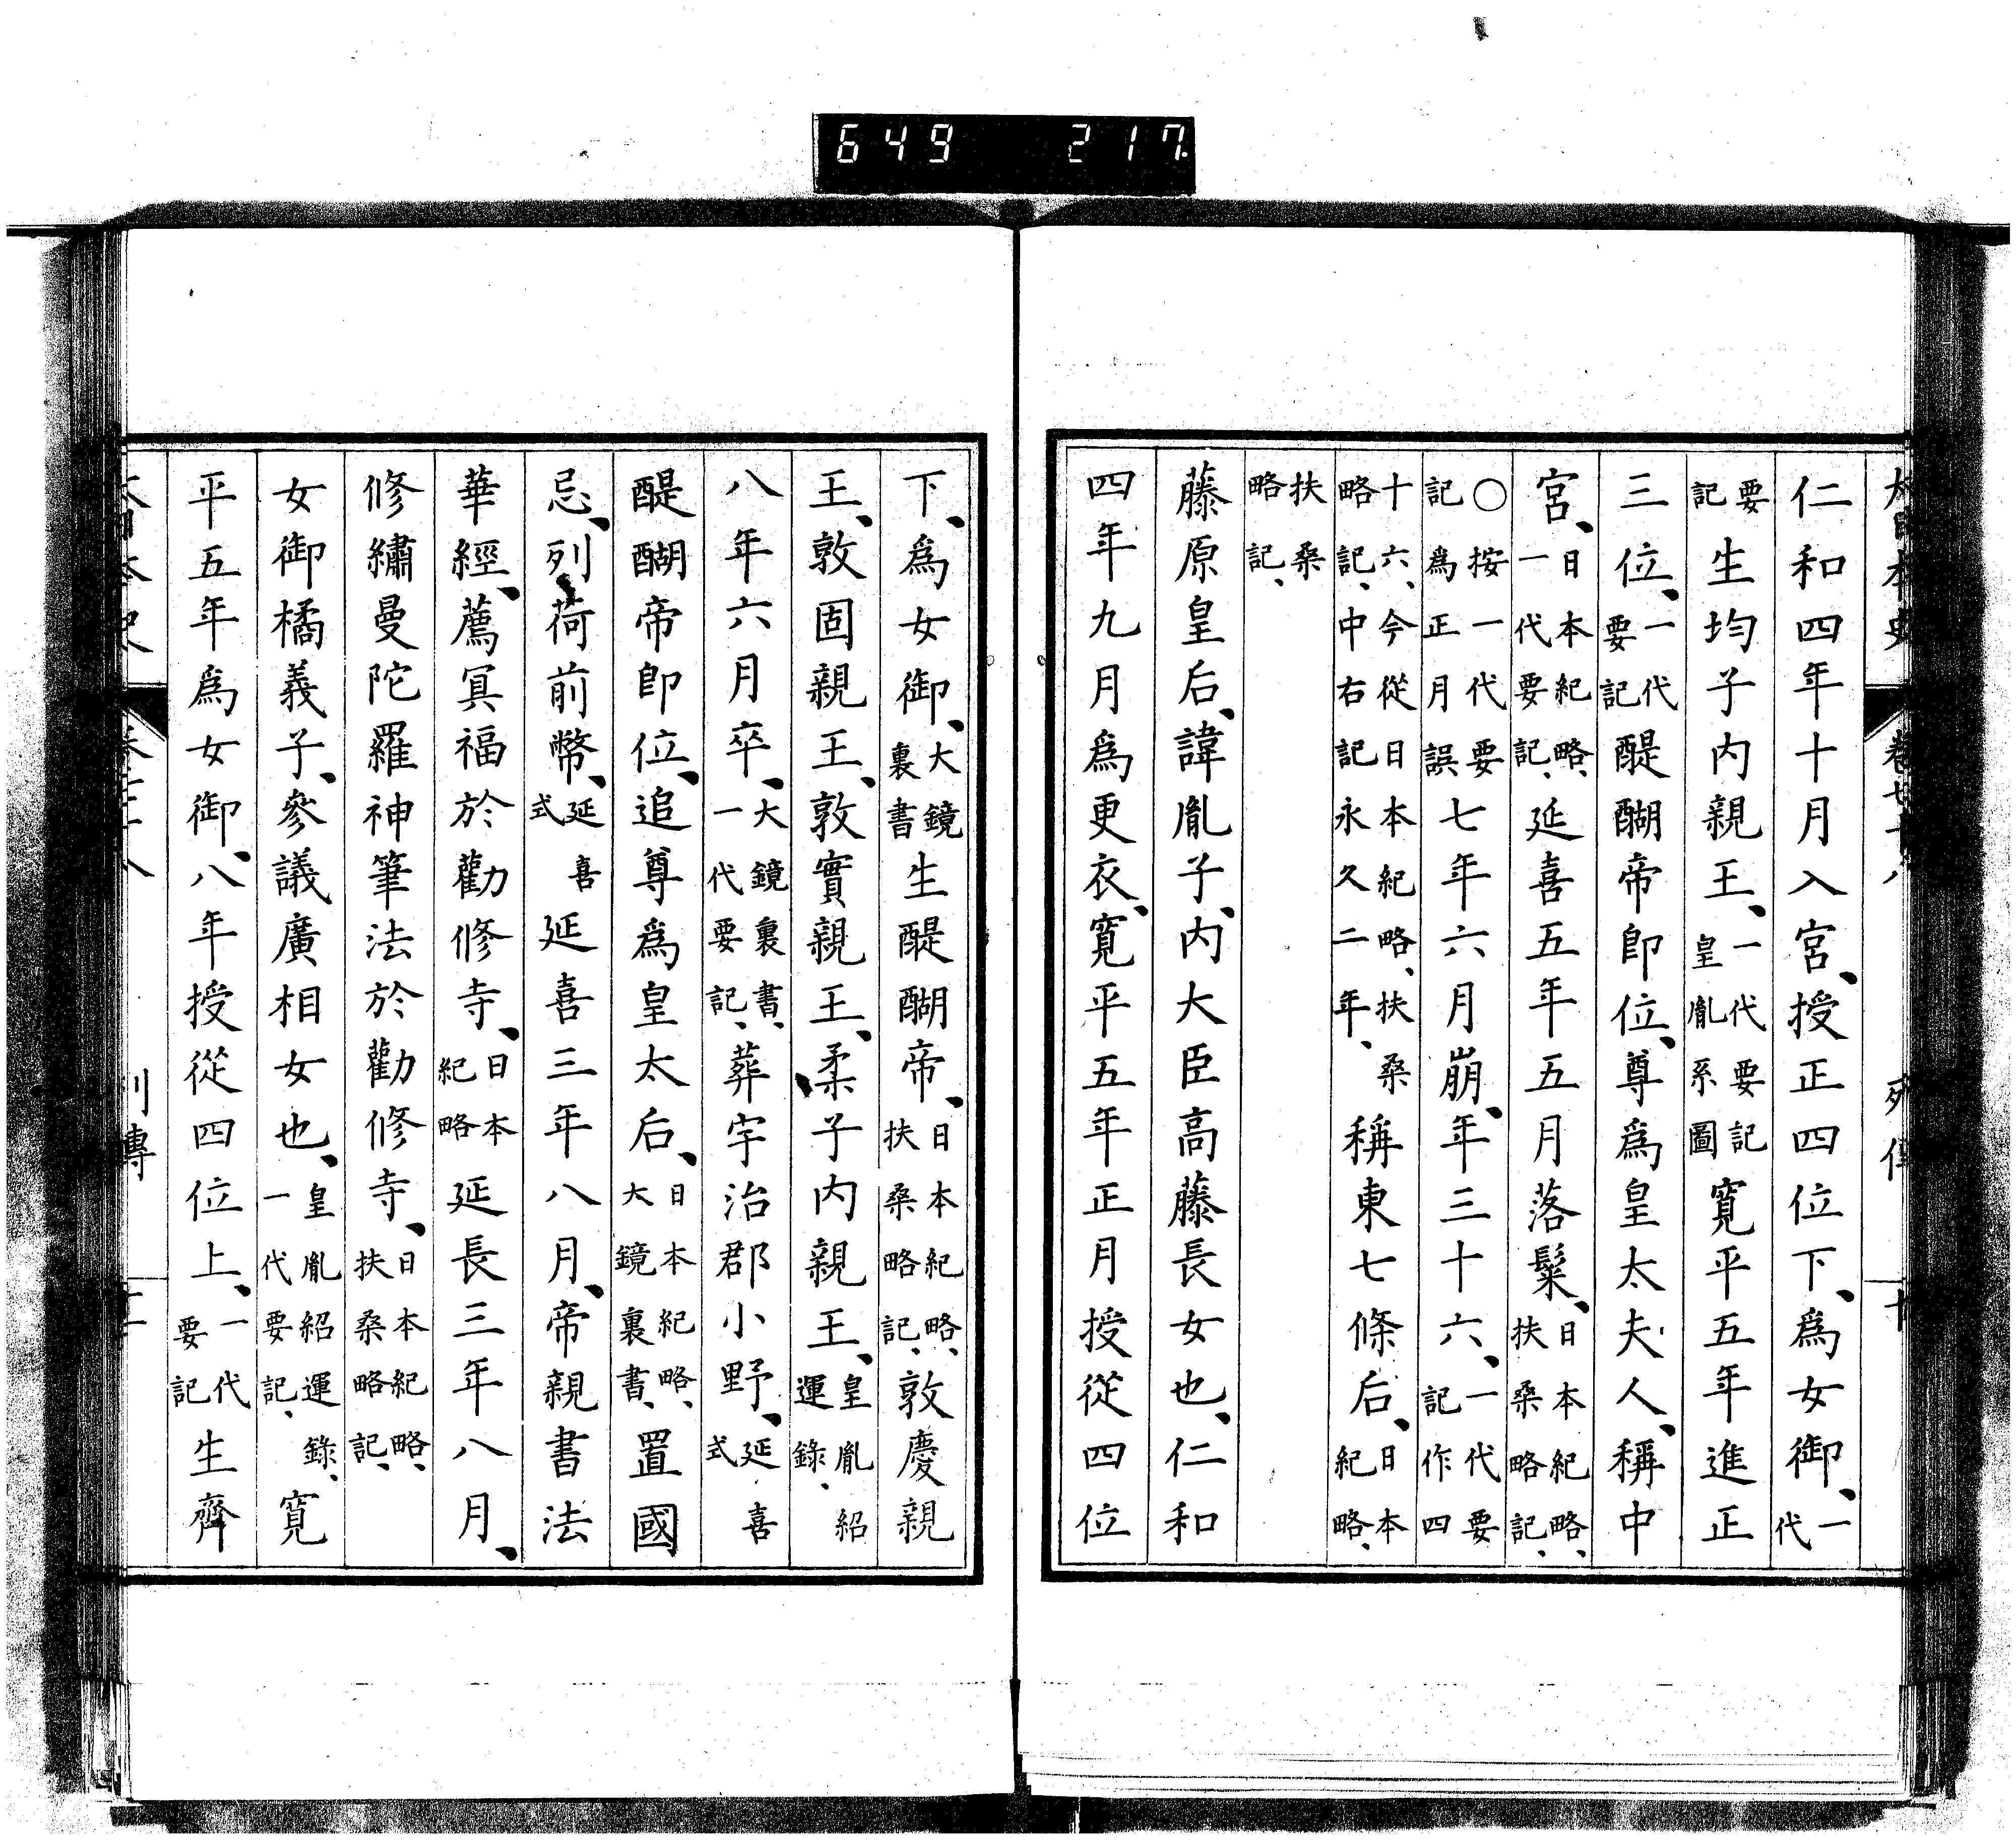 649 217
大日本史 列傳 十
仁和四年十月入宮、授正四位下、爲女御、一代
要記生均子内親王、一代要記皇胤系圖寬平五年進正
三位、一代要記醍醐帝卽位、尊爲皇太夫人、稱中
宮、日本紀略、一代要記、延喜五年五月落髮、日本紀略、扶桑略記、
○按一代要記爲正月誤七年六月崩、年三十六、一代要記作四
十六、今從日本紀略、扶桑略記、中右記永久二年、稱東七條后、日本紀略、
扶桑略記、
藤原皇后、諱胤子、内大臣高藤長女也、仁和
四年九月爲更衣、寬平五年正月授從四位
下、爲女御、大鏡裏書生醍醐帝、日本紀略、扶桑略記、敦慶親
王、敦固親王、敦實親王、柔子内親王、皇胤紹運錄、
八年六月卒、大鏡裏書、一代要記、葬宇治郡小野、延喜式
醍醐帝卽位、追尊爲皇太后、日本紀略、大鏡裏書、置國
忌、列荷前幣、延喜式延喜三年八月、帝親書法
華經、薦冥福於勸修寺、日本紀略延長三年八月、
修繡曼陀羅神筆法於勸修寺、日本紀略、扶桑略記、
女御橘義子、參議廣相女也、皇胤紹運錄、一代要記、寬
平五年爲女御、八年授從四位上、一代要記生齊
列傳